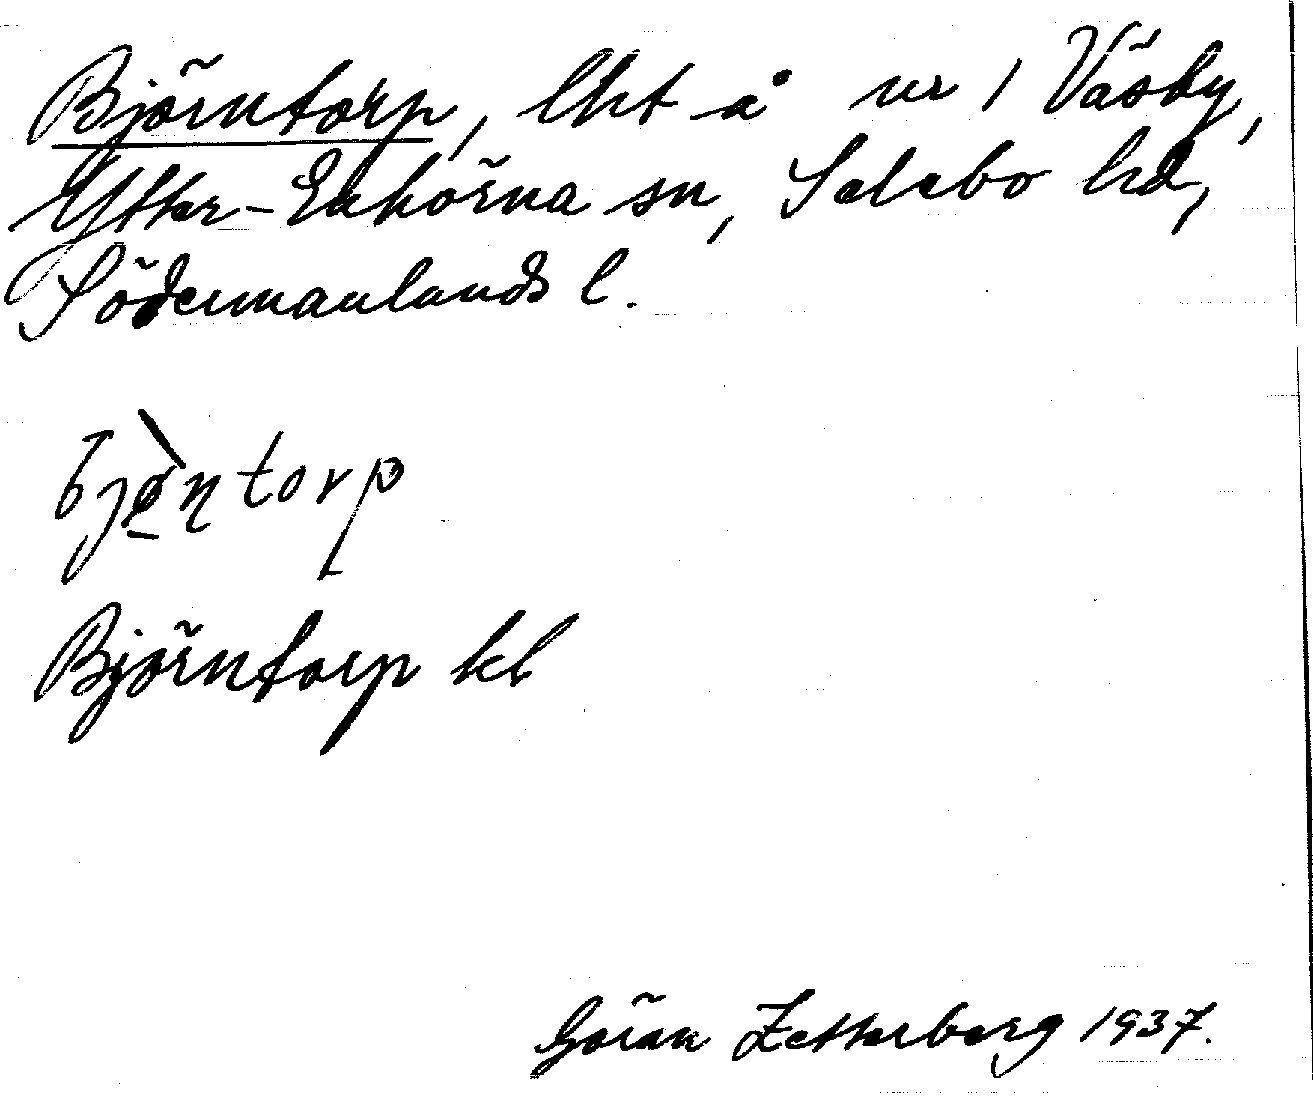 Björntorp, lht å nr 1 Väsby,
Ytter-Enhörna sn, Selebo hd,
Södermanlands l.
Björntorp kl
Göran Zetterberg 1937.